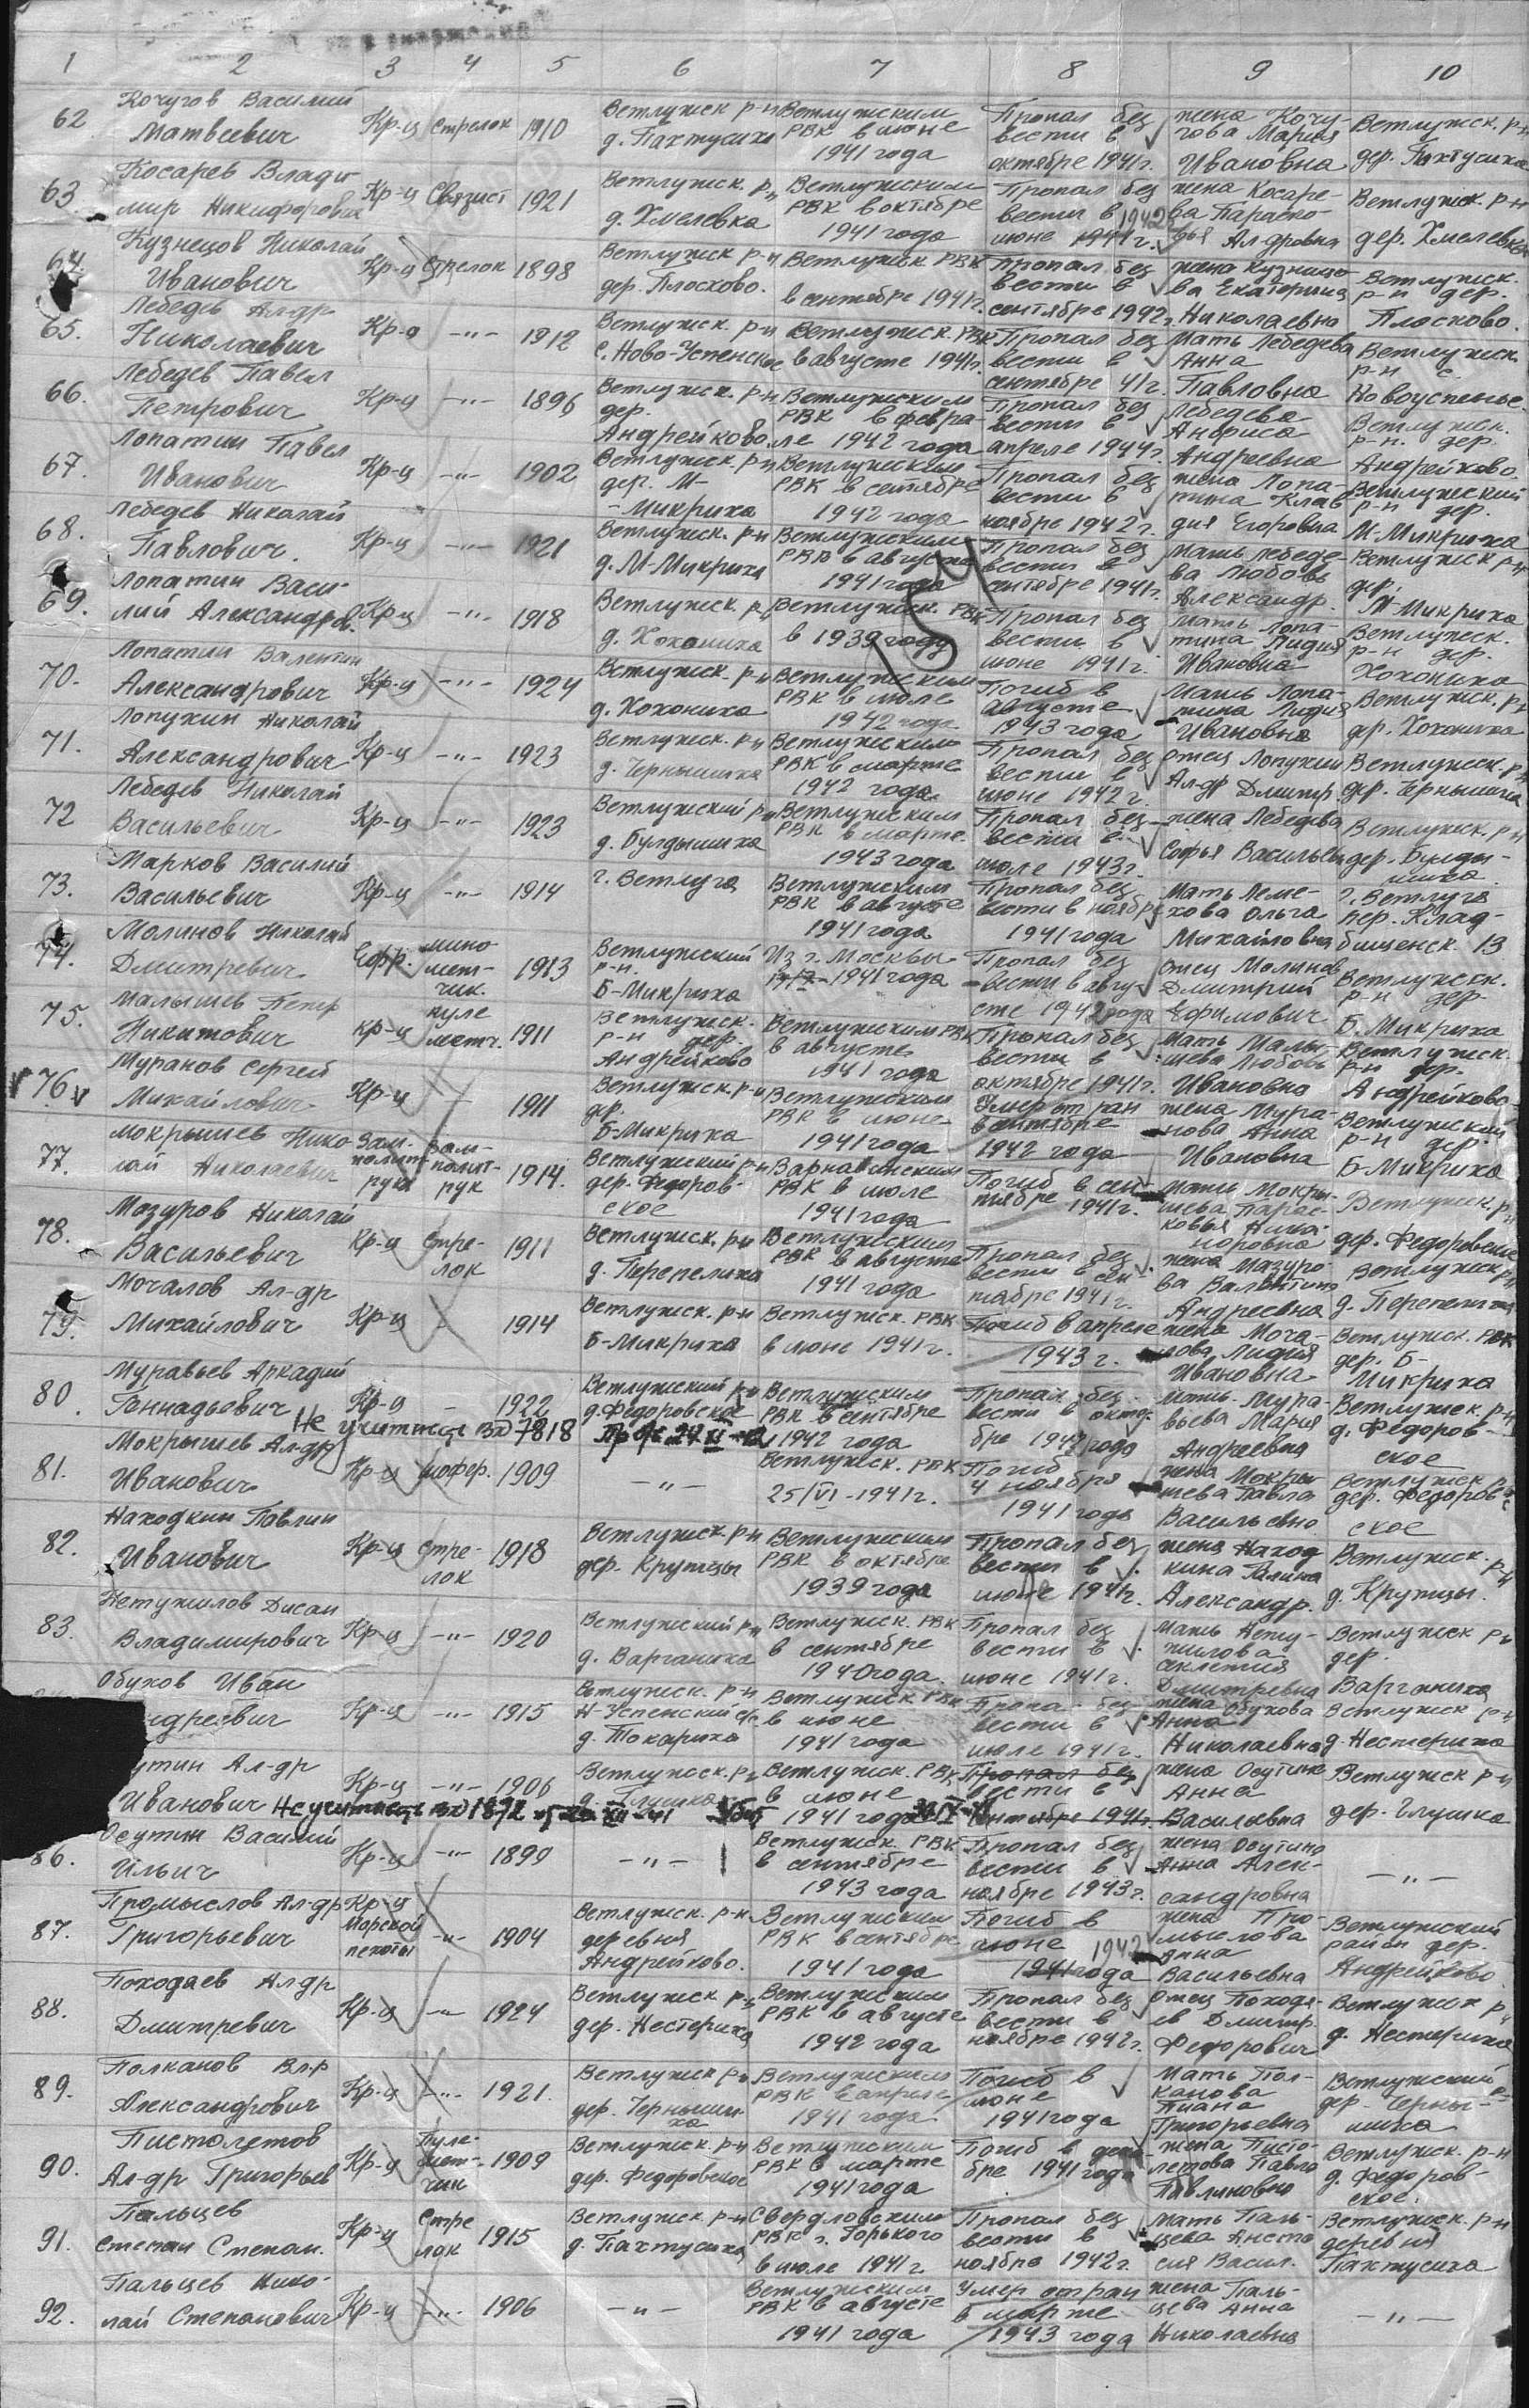 1 2 3 4 5 6 7 8 9 10
62 Кочугов Василий Матвеевич Кр-ц стрелок 1910 Ветлужск р-н д. Пахтусиха Ветлужским РВК в июне 1941 года Пропал без вести в октябре 1941г. жена Кочугова Мария Ивановна Ветлужск. р-н дер. Пахтусиха
63 Косарев Владимир Никифорович Кр-ц Связист 1921 Ветлужск. р-н д. Хмелевка Ветлужским РВК в октябре 1941 года Пропал без вести в июне 1942 жена Косарева Парасковья Ал-дровна Ветлужск. р-н дер. Хмелевка
64 Кузнецов Николай Иванович Кр-ц Стрелок 1898 Ветлужск р-н дер. Плосково. Ветлужск РВК в сентябре 1941г. Пропал без вести в сентябре 1942г. жена Кузнецова Екатерина Николаевна Ветлужск. р-н дер. Плосково.
65. Лебедев Ал-др Николаевич Кр-ц -"- 1912 Ветлужск. р-н с. Ново-Успенское Ветлужск. РВК в августе 1941г. Пропал без вести в сентябре 41г. Мать Лебедева Анна Павловна Ветлужск. р-н с. Новоуспенье.
66. Лебедев Павел Петрович Кр-ц -"- 1896 Ветлужск. р-н дер. Андрейково Ветлужским РВК в феврале 1942 года Пропал без вести в апреле 1944г. Лебедева Анфиса Андреевна Ветлужск. р-н. дер. Андрейково.
67. Лопатин Павел Иванович Кр-ц -"- 1902 Ветлужск. р-н дер. М-Микриха Ветлужским РВК в сентябре 1942 года Пропал без вести в ноябре 1942г. жена Лопатина Клавдия Егоровна Ветлужский р-н дер. М-Микриха
68. Лебедев Николай Павлович. Кр-ц -"- 1921 Ветлужск. р-н д. М-Микриха Ветлужским РВК в августе 1941 года Пропал без вести в сентябре 1941г. Мать Лебедева Любовь Александр. Ветлужск р-н дер. М-Микриха
69. Лопатин Василий Александров. Кр-ц -"- 1918 Ветлужск. р-н д. Хохониха Ветлужск. РВК в 1939 году Пропал без вести в июне 1941г. Мать Лопатина Лидия Ивановна Ветлужск. р-н дер. Хохониха
70. Лопатин Валентин Александрович Кр-ц -"- 1924 Ветлужск. р-н д. Хохониха Ветлужским РВК в июле 1942 года Погиб в августе 1943 года Мать Лопатина Лидия Ивановна Ветлужск. р-н дер. Хохониха
71. Лопухин Николай Александрович Кр-ц -"- 1923 Ветлужск. р-н д. Чернышиха Ветлужским РВК в марте 1942 года Пропал без вести в июне 1942г. отец Лопухин Ал-др Дмитр. Ветлужск. р-н дер. Чернышиха
72 Лебедев Николай Васильевич Кр-ц -"- 1923 Ветлужский р-н д. Булдышиха Ветлужским РВК в марте 1943 года Пропал без вести в июле 1943г. жена Лебедева Софья Васильевн Ветлужск. р-н дер. Булдышиха.
73. Марков Василий Васильевич Кр-ц -"- 1914 г. Ветлуга Ветлужским РВК в августе 1941 года Пропал без вести в ноябре 1941 года Мать Лемехова Ольга Михайловна г. Ветлуга пер. Кладбищенск. 13
74. Молинов Николай Дмитревич Ефр. минометчик. 1913 Ветлужский р-н. Б-Микриха Из г. Москвы 1941 года Пропал без вести в августе 1942 года отец Молинов Дмитрий Ефимович Ветлужск. р-н дер. Б. Микриха
75. Малышев Петр Никитович кр-ц пулеметч. 1911 Ветлужск. р-н дер. Андрейково Ветлужским РВК в августе 1941 года Пропал без вести в октябре 1941г. Мать Малышева Любовь Ивановна Ветлужск. р-н дер. Андрейково
76 Муранов Сергей Михайлович Кр-ц - 1911 Ветлужск. р-н дер. Б-Микриха Ветлужским РВК в июне 1941 года Умер от ран в сентябре 1942 года жена Муранова Анна Ивановна Ветлужский р-н дер. Б-Микриха
77. Мокрышев Николай Николаевич Зам-политрука Зам-политрук 1914. Ветлужский р-н дер. Федоровское Варнавинским РВК в июле 1941 года Погиб в сентябре 1941г. Мать Мокрышева Парасковья Никаноровна Ветлужск. р-н дер. Федоровское
78. Мазуров Николай Васильевич Кр-ц Стрелок 1911 Ветлужск. р-н д. Перепелиха Ветлужским РВК в августе 1941 года Пропал без вести в сентябре 1941г. жена Мазурова Валентина Андреевна Ветлужск р-н д. Перепелиха
79. Мочалов Ал-др Михайлович Кр-ц - 1914 Ветлужск. р-н Б-Микриха Ветлужск. РВК в июне 1941г. Погиб в апреле 1943г. жена Мочалова Лидия Ивановна Ветлужск. РВК дер. Б-Микриха
80. Муравьев Аркадий Геннадьевич Кр-ц - 1922 Ветлужский р-н д. Федоровское Ветлужским РВК в сентябре 1942 года Пропал без вести в октябре 1942 года Мать Муравьева Мария Андреевна Ветлужск. р-н д. Федоровское
Не учитыв. вх 7818
81. Мокрышев Ал-др Иванович Кр-ц шофер. 1909 -"- Ветлужск. РВК 25/VI-1941г. Погиб 4 ноября 1941 года жена Мокрышева Павла Васильевна Ветлужск р-н дер. Федоровское
82. Находкин Павлин Иванович Кр-ц стрелок 1918 Ветлужск. р-н дер. Крутцы Ветлужским РВК в октябре 1939 года Пропал без вести в июне 1941г. жена Находкина Галина Александр. Ветлужск. р-н д. Крутцы.
83. Нетужилов Дисан Владимирович Кр-ц -"- 1920 Ветлужский р-н д. Варганиха Ветлужск. РВК в сентябре 1940 года Пропал без вести в июне 1941г. Мать Нетужилова Секлетия Дмитревна Ветлужск р-н дер. Варганиха
Обухов Иван ндреевич Кр-ц -"- 1915 Ветлужск. р-н Н-Успенский с/с д. Токариха Ветлужск РВК в июне 1941 года Пропал без вести в июле 1941г. жена Обухова Анна Николаевна Ветлужск р-н д. Нестериха
утин Ал-др Иванович Кр-ц -"- 1906 Ветлужск. р-н д. Глушка Ветлужск. РВК в июне 1941 года Пропал без вести в сентябре 1941г. жена Осутина Анна Васильевна Ветлужск р-н дер. Глушка
Не учитывать вх 1872
86. Осутин Василий Ильич Кр-ц -"- 1899 -"- Ветлужск. РВК в сентябре 1943 года Пропал без вести в ноябре 1943г. жена Осутина Анна Александровна -"-
87. Промыслов Ал-др Григорьевич Кр-ц Морской пехоты -"- 1904 Ветлужск. р-н деревня Андрейково. Ветлужским РВК в сентябре 1941 года Погиб в июне 1942 1941 года жена Промыслова Анна Васильевна Ветлужский район дер. Андрейково
88. Походяев Ал-др Дмитревич Кр-ц -"- 1924 Ветлужск р-н дер. Нестериха Ветлужским РВК в августе 1942 года Пропал без вести в ноябре 1942г. Отец Походяев Дмитр. Федорович Ветлужск р-н д. Нестериха
89. Полканов Вл-р Александрович Кр-ц -"- 1921. Ветлужск р-н дер. Чернышиха Ветлужским РВК в апреле 1941 года Погиб в июне 1941 года Мать Полканова Григорьевна Ветлужский р-н дер. Чернышиха
90. Пистолетов Ал-др Григорьев Кр-ц Пулеметчик 1909 Ветлужск. р-н дер. Федоровское Ветлужским РВК в марте 1941 года Погиб в декабре 1941 года жена Пистолетова Павла Павлиновна Ветлужск. р-н д. Федоровское.
91. Пальцев Степан Степан. Кр-ц Стрелок 1915 Ветлужск. р-н д. Пахтусиха Свердловским РВК г. Горького в июле 1941г. Пропал без вести в ноябре 1942г. Мать Пальцева Анастасия Васил. Ветлужск. р-н деревня Пахтусиха
92. Пальцев Николай Степанович Кр-ц -"- 1906 -"- Ветлужским РВК в августе 1941 года Умер от ран в марте 1943 года жена Пальцева Анна Николаевна -"-